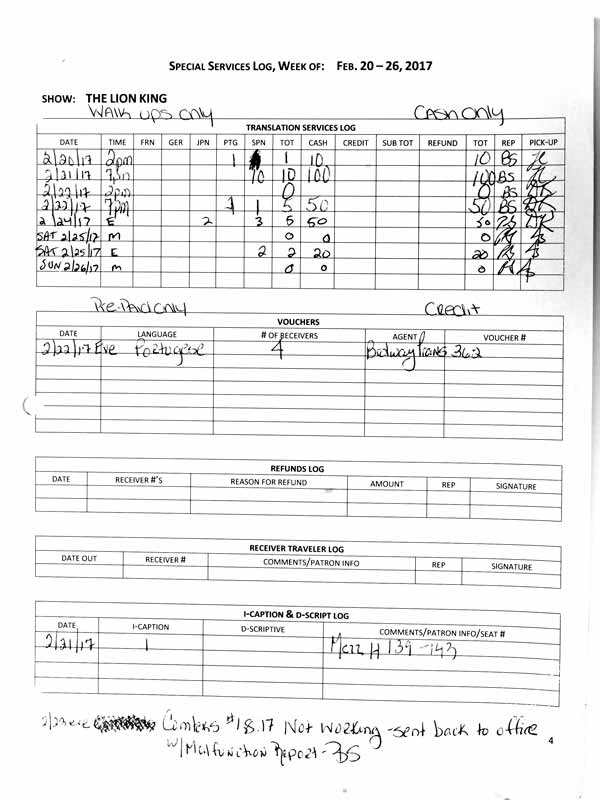 SPECIAL SERVICES LOG, WEEK OF: FEB. 20 – 26, 2017
SHOW: THE LION KING
WALK UPS ONLY CASH ONLY
TRANSLATION SERVICES LOG
DATE TIME FRN GER JPN PTG SPN TOT CASH CREDIT SUB TOT REFUND TOT REP PICK-UP
2/20/17 2pm 1 1 10 10 BS
2/21/17 7pm 10 10 100 100 BS
2/22/17 2pm 0 0 BS
2/22/17 7pm 1 5 50 50 BS
2/24/17 E 2 3 5 50 50
SAT 2/25/17 M 0 0 0
SAT 2/25/17 E 2 2 20 20
SUN 2/26/17 M 0 0 0
Pre-Paid Only Credit
VOUCHERS
DATE LANGUAGE # OF RECEIVERS AGENT VOUCHER #
2/22/17 Eve Portugese 4 362
REFUNDS LOG
DATE RECEIVER #'S REASON FOR REFUND AMOUNT REP SIGNATURE
RECEIVER TRAVELER LOG
DATE OUT RECEIVER # COMMENTS/PATRON INFO REP SIGNATURE
I-CAPTION & D-SCRIPT LOG
DATE I-CAPTION D-SCRIPTIVE COMMENTS/PATRON INFO/SEAT #
2/21/17 1 Mezz H 139-143
#18.17 Not working - sent back to office
w/ Malfunction Report - BS
4